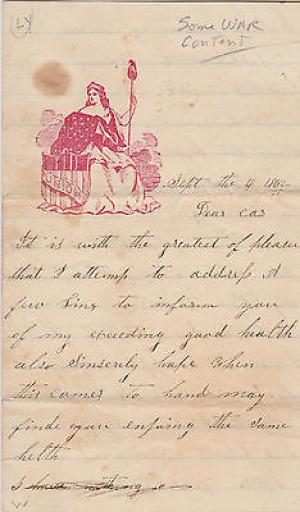 Some WAR
Content
Sept the 4 186
Dear cos
It is with the greatest of pleasure
that I attemp to address A
few lins to inform you
of my exceeding good health
also Sincerely hope when
this comes to hand may
finde you enjoing the same
helth
I have nothing